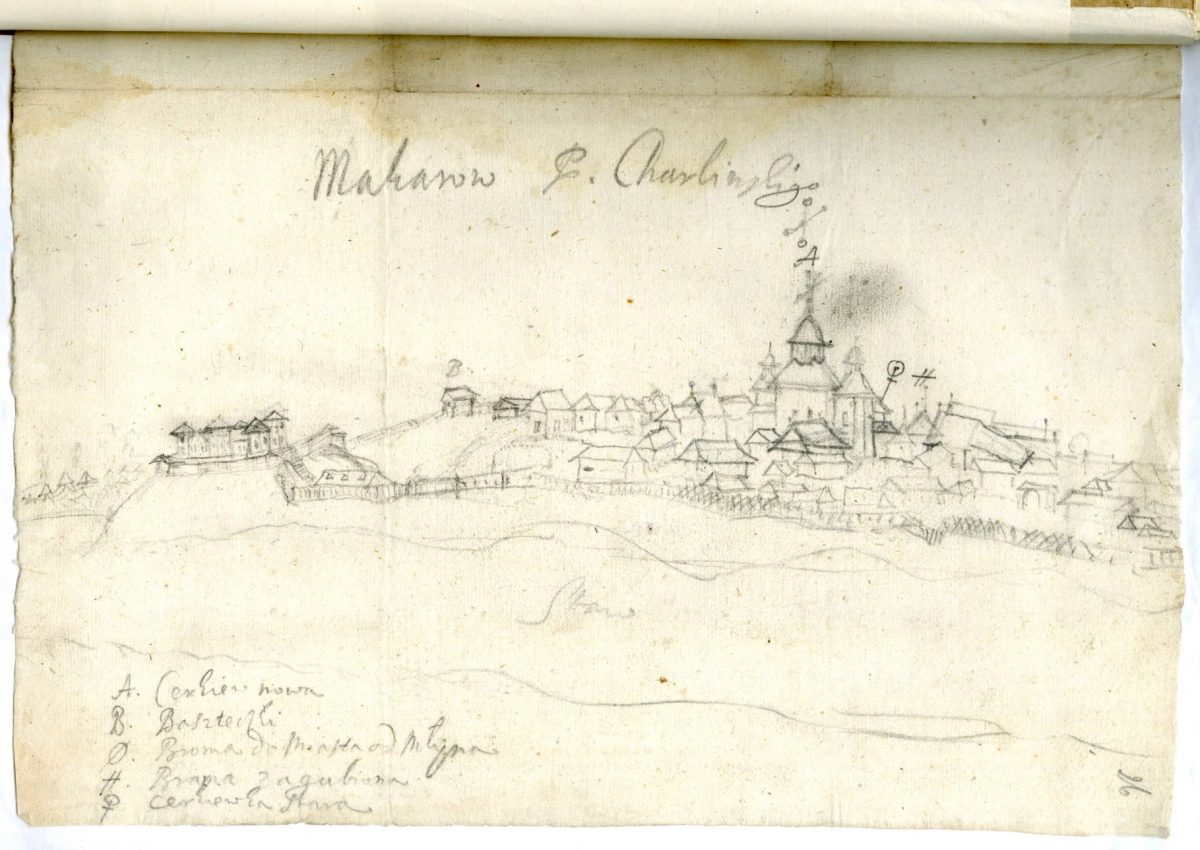 Makarow P. Charlinski
A
B
H
Staw
A. Cerkiew nowa
B. Baszteczki
Ø. Broma do Miasta od Młyna
H. Brama zagubiona
Cerkiewka stara